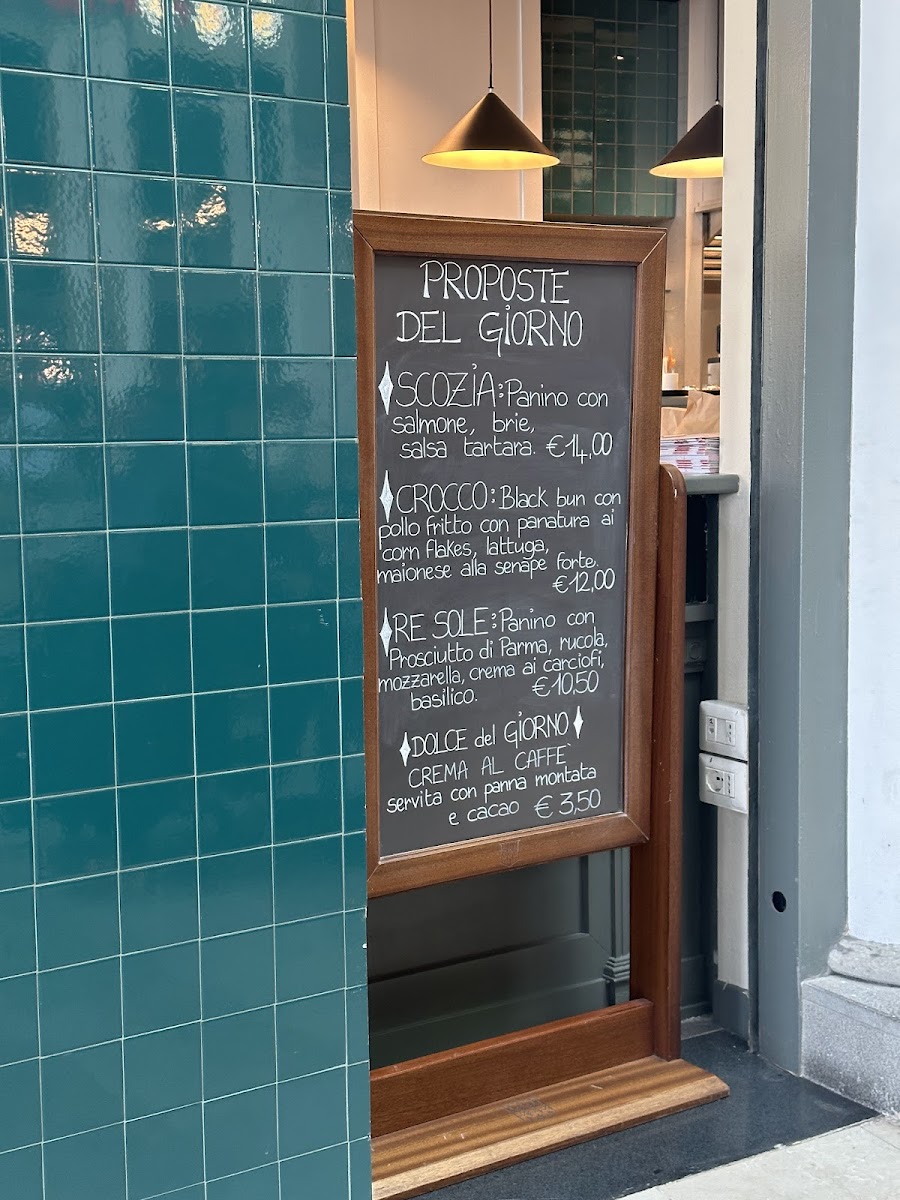 PROPOSTE
DEL GIORNO
SCOZIA: Panino con
salmone, brie,
salsa tartara. €14,00
CROCCO: Black bun con
pollo fritto con panatura ai
corn flakes, lattuga,
maionese alla senape forte.
€12,00
RE SOLE: Panino con
Prosciutto di Parma, rucola,
mozzarella, crema ai carciofi,
basilico. €10,50
DOLCE del GIORNO
CREMA AL CAFFE`
servita con panna montata
e cacao € 3,50